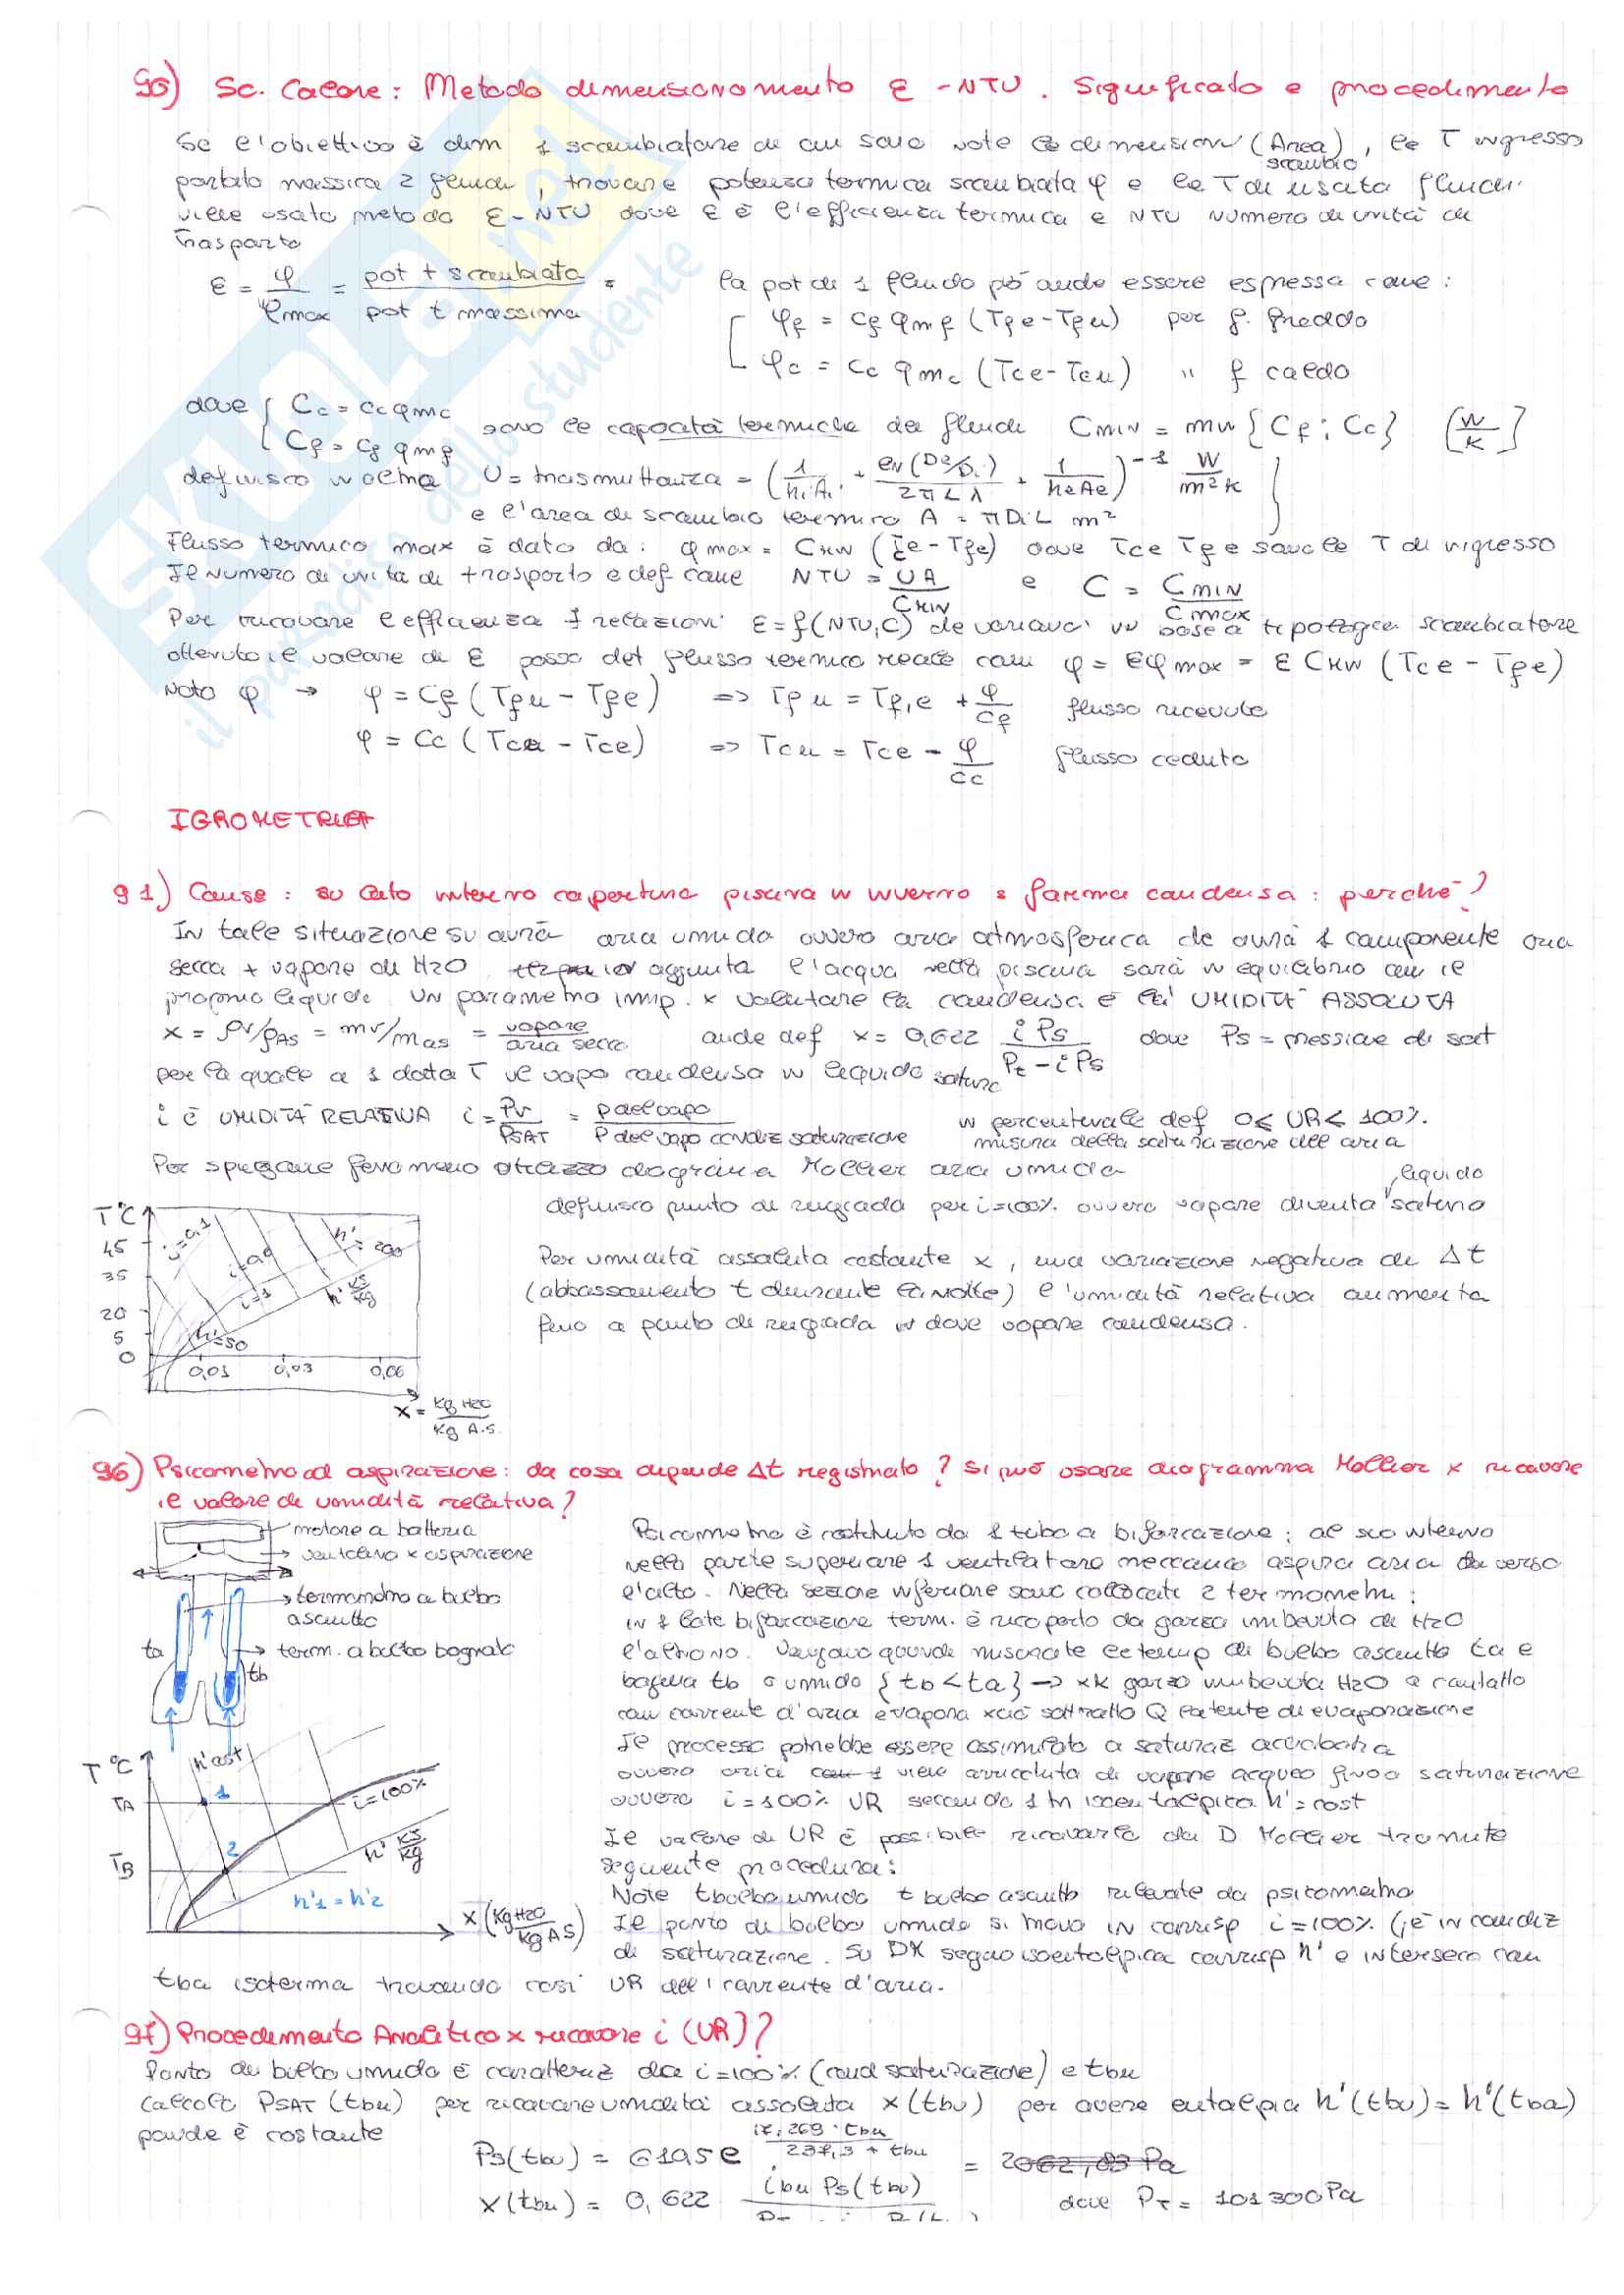 90) Sc. Calore: Metodo dimensionamento ε-NTU. Significato e procedimento
Se l'obiettivo è dim 1 scambiatore di cui sono note le dimensioni (Area scambio), le T ingresso
portata massica 2 fluidi, trovare potenza termica scambiata φ e le T di uscita fluidi
viene usato metodo ε-NTU dove ε è l'efficienza termica e NTU numero di unità di
trasporto
ε = φ/φmax = pot t scambiata / pot t massima = la pot di 1 fluido può anche essere espressa come:
φf = cf qmf (Tfe-Tfu) per f. freddo
φc = cc qmc (Tce-Tcu) " f caldo
dove { Cc = cc qmc
Cf = cf qmf sono le capacità termiche dei fluidi Cmin = min {Cf; Cc} [W/K]
definisco inoltre U = trasmittanza = (1/hiAi + ln(De/Di)/2πLλ + 1/heAe)^-1 W/m²K
e l'area di scambio termico A = πDiL m²
Flusso termico max è dato da: φmax = CMIN (Tce-Tfe) dove Tce Tfe sono le T di ingresso
Il numero di unità di trasporto è def come NTU = UA/CMIN e C = CMIN/Cmax
Per ricavare l'efficienza ∃ relazioni ε=f(NTU,C) che variano in base a tipologia scambiatore
ottenuto il valore di ε posso det flusso termico reale come φ = εφmax = ε CMIN (Tce - Tfe)
Noto φ → φ = Cf (Tfu - Tfe) => Tfu = Tf,e + φ/Cf flusso ricevuto
φ = Cc (Tcu - Tce) => Tcu = Tce - φ/Cc flusso ceduto
IGROMETRIA
91) Cause: su lato interno copertura piscina in inverno si forma condensa: perchè?
In tale situazione si avrà aria umida ovvero aria atmosferica che avrà 1 componente aria
secca + vapore di H2O aggiunta l'acqua nella piscina sarà in equilibrio con il
proprio liquido. Un parametro imp. x valutare la condensa è la' UMIDITÀ ASSOLUTA
x = ρv/ρAS = mv/mas = vapore/aria secca anche def x = 0,622 i Ps / Pt - i Ps dove Ps = pressione di sat
per la quale a 1 data T il vapo condensa in liquido saturo
i è UMIDITÀ RELATIVA i = Pv/PSAT = P del vapo / P del vapo condiz saturazione in percentuale def 0≤ UR≤ 100%.
misura della saturazione dell aria
Per spiegare fenomeno utilizzo diagramma Mollier aria umida
definisco punto di rugiada per i=100% ovvero vapore diventa liquido saturo
Per umidità assoluta costante x, una variazione negativa di Δt
(abbassamento t durante la notte) l'umidità relativa aumenta
fino a punto di rugiada in dove vapore condensa.
T°C
45
35
20
5
0
i=0,1
i=1
h'=50
h'=200
h' KJ/Kg
0,01 0,03 0,06
x = Kg H2O / Kg A.S.
96) Psicrometro ad aspirazione: da cosa dipende Δt registrato? Si può usare diagramma Mollier x ricavare
il valore di umidità relativa?
motore a batteria
ventolino x aspirazione
termometro a bulbo
asciutto
term. a bulbo bagnato
ta
tb
Psicrometro è costituito da 1 tubo a biforcazione; al suo interno
nella parte superiore 1 ventilatore meccanico aspira aria da verso
l'alto. Nella sezione inferiore sono collocati 2 termometri:
in 1 lato biforcazione term. è ricoperto da garza imbevuta di H2O
l'altro no. Vengono quindi misurate le temp di bulbo asciutto ta e
bagnato tb o umido {tb<ta} → xk garza imbevuta H2O a contatto
con corrente d'aria evapora xciò sottratto Q latente di evaporazione
Il processo potrebbe essere assimilato a saturaz adiabatica
ovvero aria viene arricchita di vapore acqueo fino a saturazione
ovvero i=100% UR secondo 1 tr isoentalpica h'=cost
Il valore di UR è possibile ricavarlo da D Mollier tramite
seguente procedura:
Note tbulbo umido t bulbo asciutto rilevate da psicrometro
Il punto di bulbo umido si trova in corrisp i=100% (è in condiz
di saturazione. Su DX seguo isoentalpica corrisp h' e interseco con
tba isoterma trovando così UR dell'corrente d'aria.
T°C
TA
TB
h'cost
1
2
i=100%
h' KJ/Kg
h'1 = h'2
X (Kg H2O / Kg AS)
97) Procedimento Analitico x ricavare i (UR)?
Punto di bulbo umido è caratteriz da i=100% (cond saturazione) e tbu
Calcolo PSAT (tbu) per ricavare umidità assoluta x(tbu) per avere entalpia h'(tbu) = h'(tba)
poichè è costante
Ps(tbu) = 610,5 e^(17,269·tbu / 237,3 + tbu) = 2062,83 Pa
X(tbu) = 0,622 ibu Ps(tbu) dove PT = 101300Pa